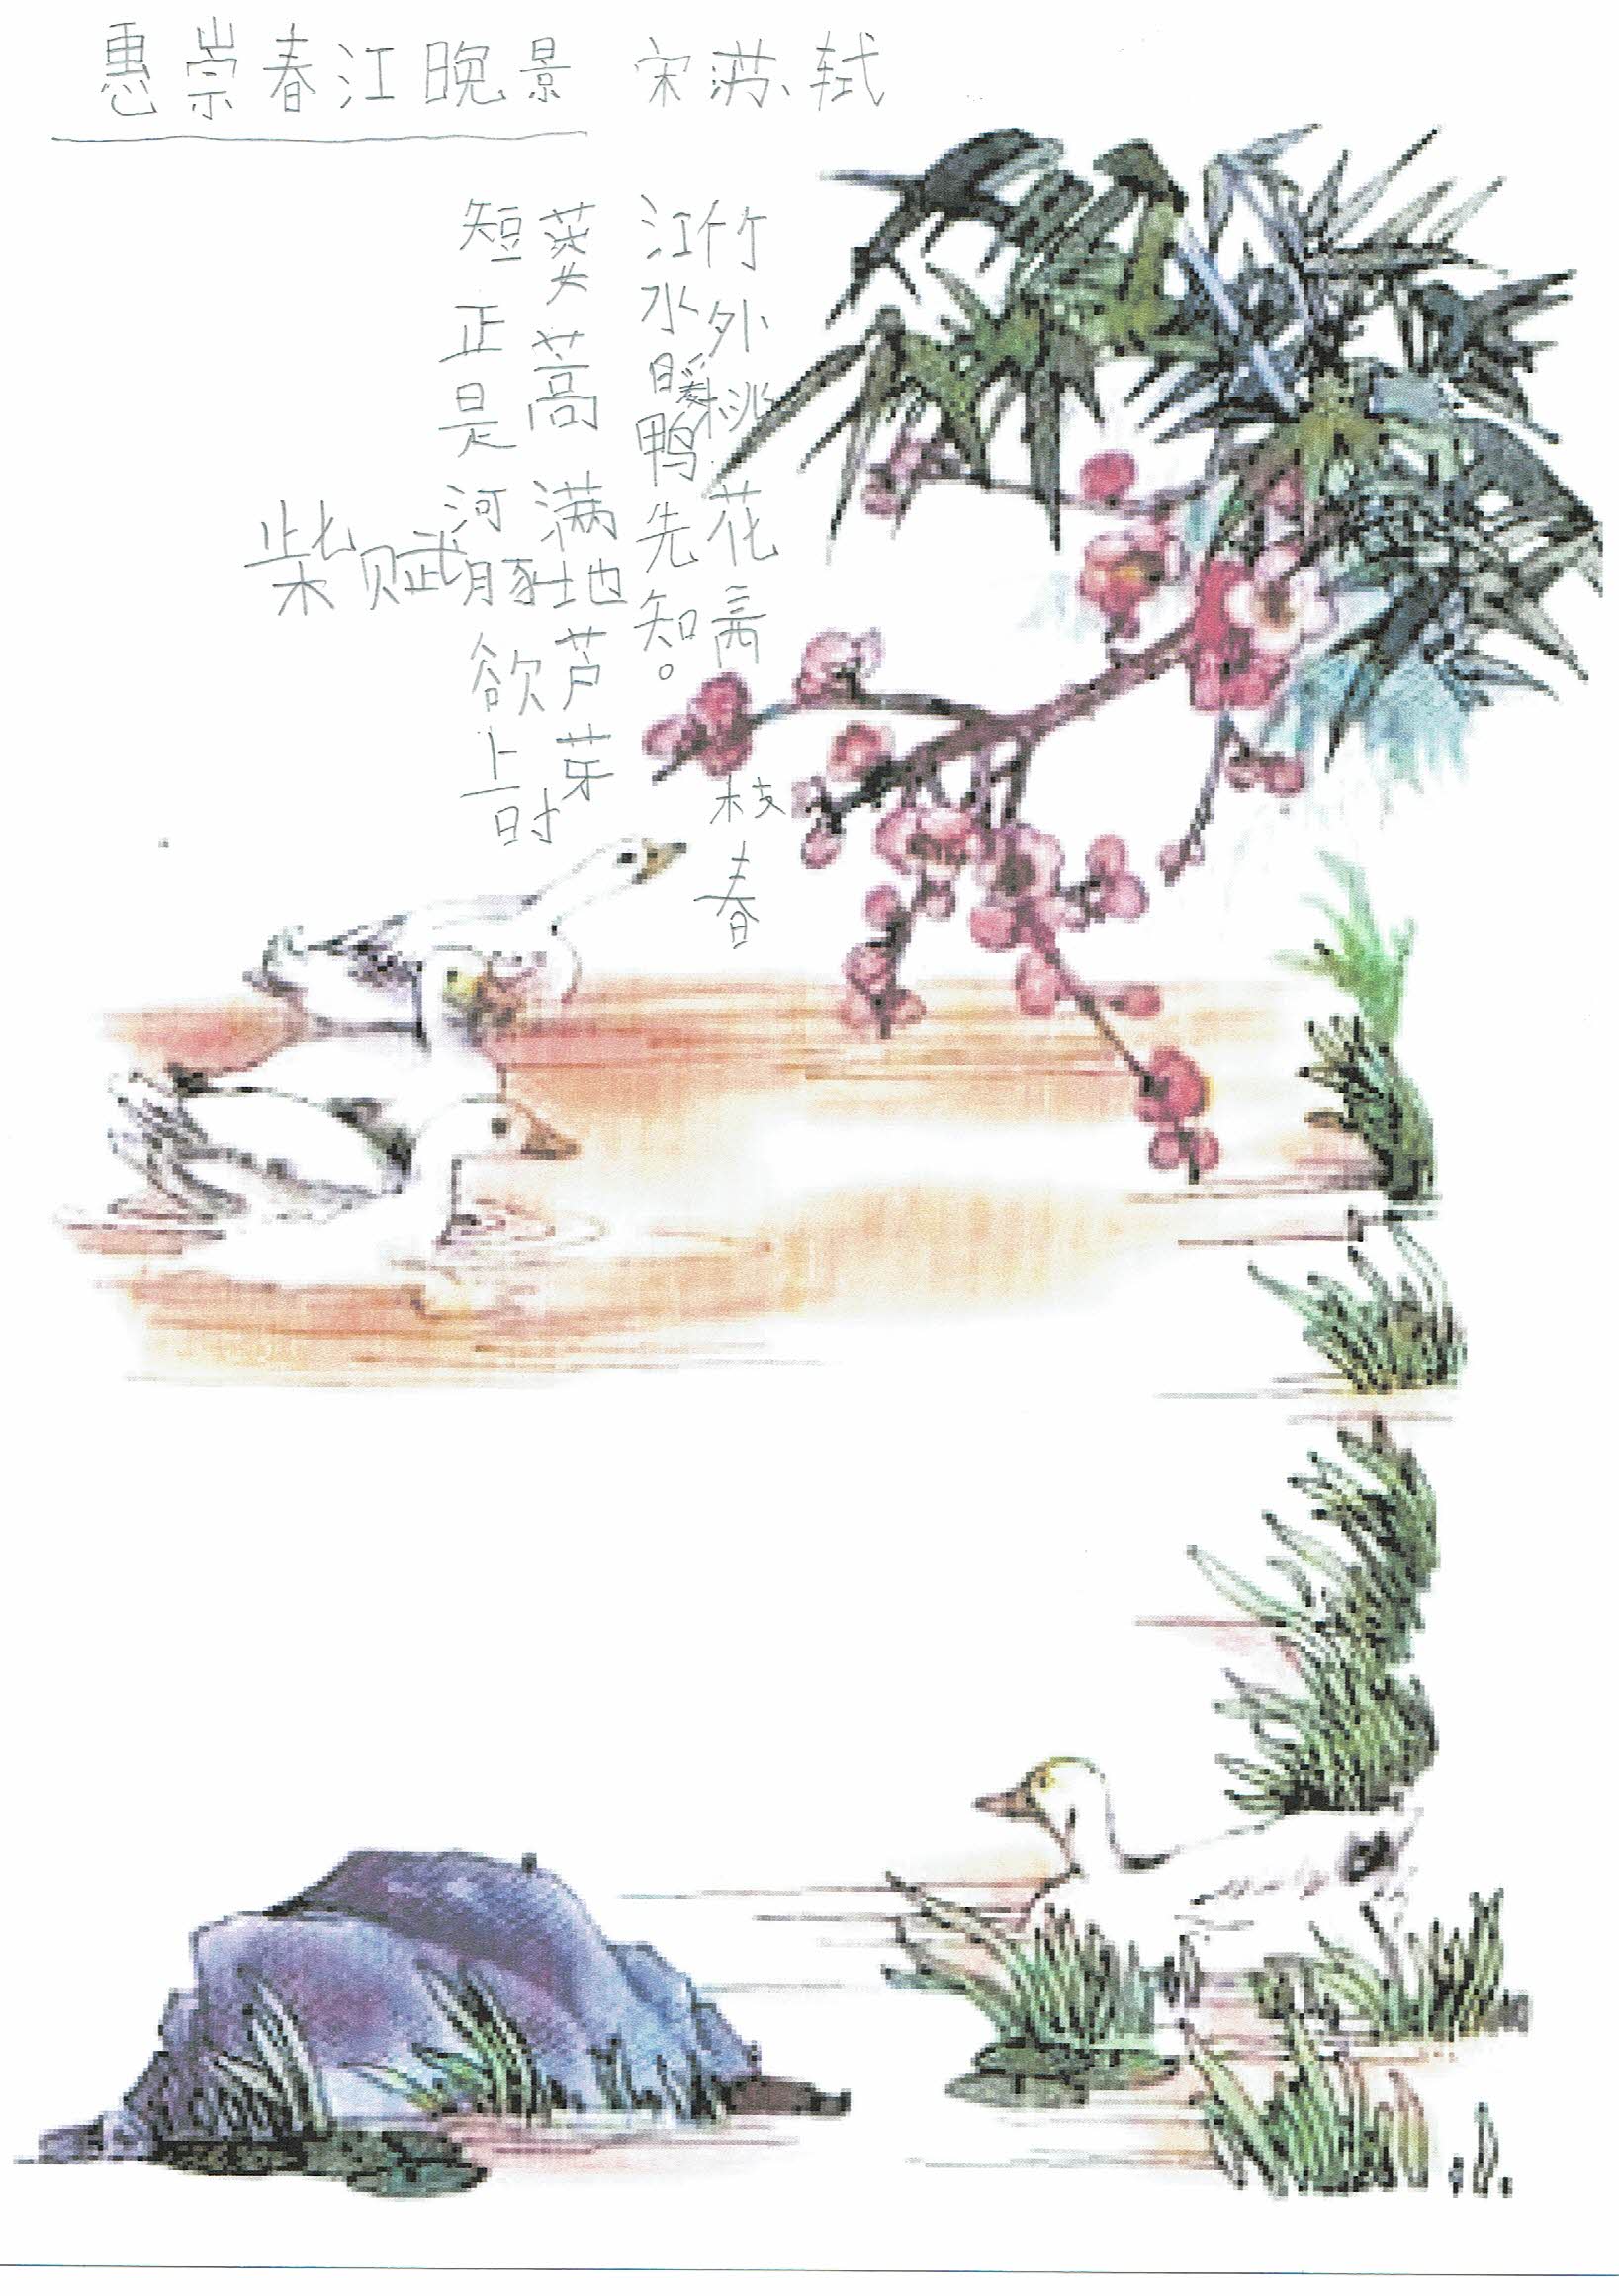 惠崇春江晚景 宋 苏轼
竹外桃花三两枝春
江水暖鸭先知。
蒌蒿满地芦芽
短正是河豚欲上时
柴赋